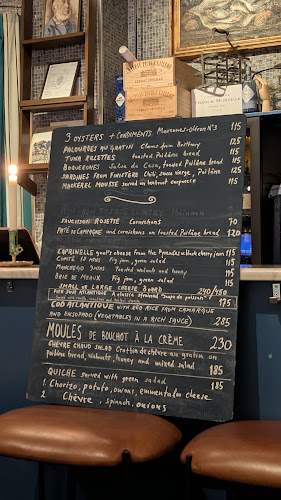 3 OYSTERS + CONDIMENTS Marennes-Oléron N°3 115
PALOURDES AU GRATIN Clams from Brittany 125
TUNA RILLETTES toasted Poilâne bread 115
BOUQUERONES Salsa du Casa, toasted Poilâne bread 115
SARDINES FROM FINISTÈRE Chili, sauce vierge, Poilâne 125
MACKEREL MOUSSE served on beetroot carpaccio 115
SAUCISSON ROSETTE Cornichons 70
PATÉ DE CAMPAGNE and cornichons on toasted Poilâne bread 120
CAPRINELLE goat's cheese from the Pyrenees w black cherry jam 115
COMTÉ 18 MOIS Fig jam, green salad 115
MONCHEGO 9 MOIS Toasted walnuts and honey 115
BRIE DE MEAUX Fig jam, green salad 115
SMALL OR LARGE CHEESE BOARD 240/480
FISH SOUP ATLANTIQUE A classic seaside "soupe de poisson" 175
COD ATLANTIQUE WITH RED RICE FROM CAMARGUE
AND KHSOPHO (VEGETABLES IN A RICH SAUCE) 285
MOULES DE BOUCHOT À LA CRÈME 230
CHÈVRE CHAUD SALAD Crottin de chèvre au gratin on
poilâne bread, walnuts, honey and mixed salad 185
QUICHE served with green salad 185
1. Chorizo, potato, onions, emmentaler cheese
2 Chèvre, spinach, onions